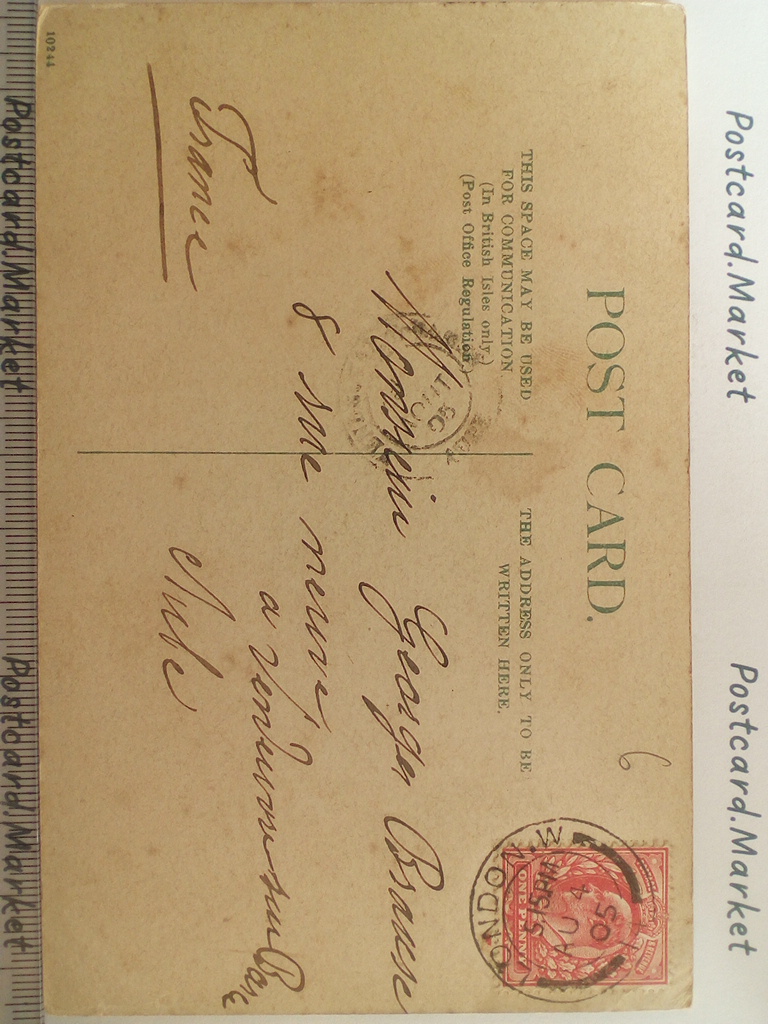 Postcard.Market Postcard.Market
POST CARD.
6
THIS SPACE MAY BE USED
FOR COMMUNICATION
(In British Isles only.)
(Post Office Regulation.)
THE ADDRESS ONLY TO BE
WRITTEN HERE.
LONDON.W
5.15PM
AU 4
05
ONE PENNY
AOUT
05
Monsieur George
8 rue neuve
a
Aube
France
10244
Postcard.Market Postcard.Market Postcard.Market